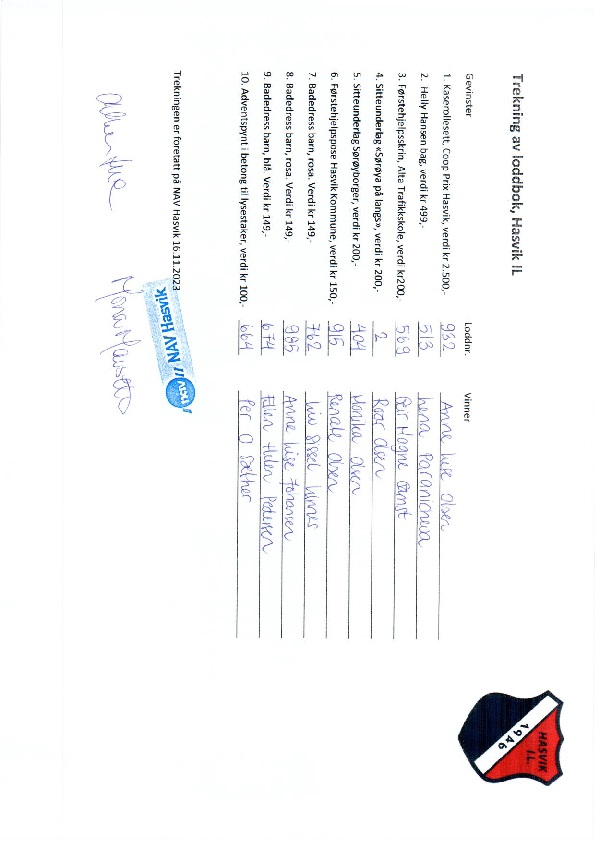 Trekning av loddbok, Hasvik IL
HASVIK
I.L.
1946
Gevinster Loddnr. Vinner
1. Kaserollesett. Coop Prix Hasvik, verdi kr 2.500,- 932 Anne Lise Olsen
2. Helly Hansen bag, verdi kr 499,- 513 Lena Paranicheva
3. Førstehjelpsskrin, Alta Trafikkskole, verdi kr200,- 569 Geir Magne
4. Sitteunderlag «Sørøya på langs», verdi kr 200,- 2 Roar Olsen
5. Sitteunderlag Sørøyborger, verdi kr 200,- 404 Monika Olsen
6. Førstehjelpspose Hasvik Kommune, verdi kr 150,- 915 Renate Olsen
7. Badedress barn, rosa. Verdi kr 149,- 762 Liv Sissel
8. Badedress barn, rosa. Verdi kr 149, 985 Anne Lise Johansen
9. Badedress barn, blå. Verdi kr 149,- 674 Ellen Helen Pedersen
10. Adventspynt i betong til lysestaker, verdi kr 100,- 664 Per O Sæther
Trekningen er foretatt på NAV Hasvik 16.11.2023
NAV // NAV Hasvik